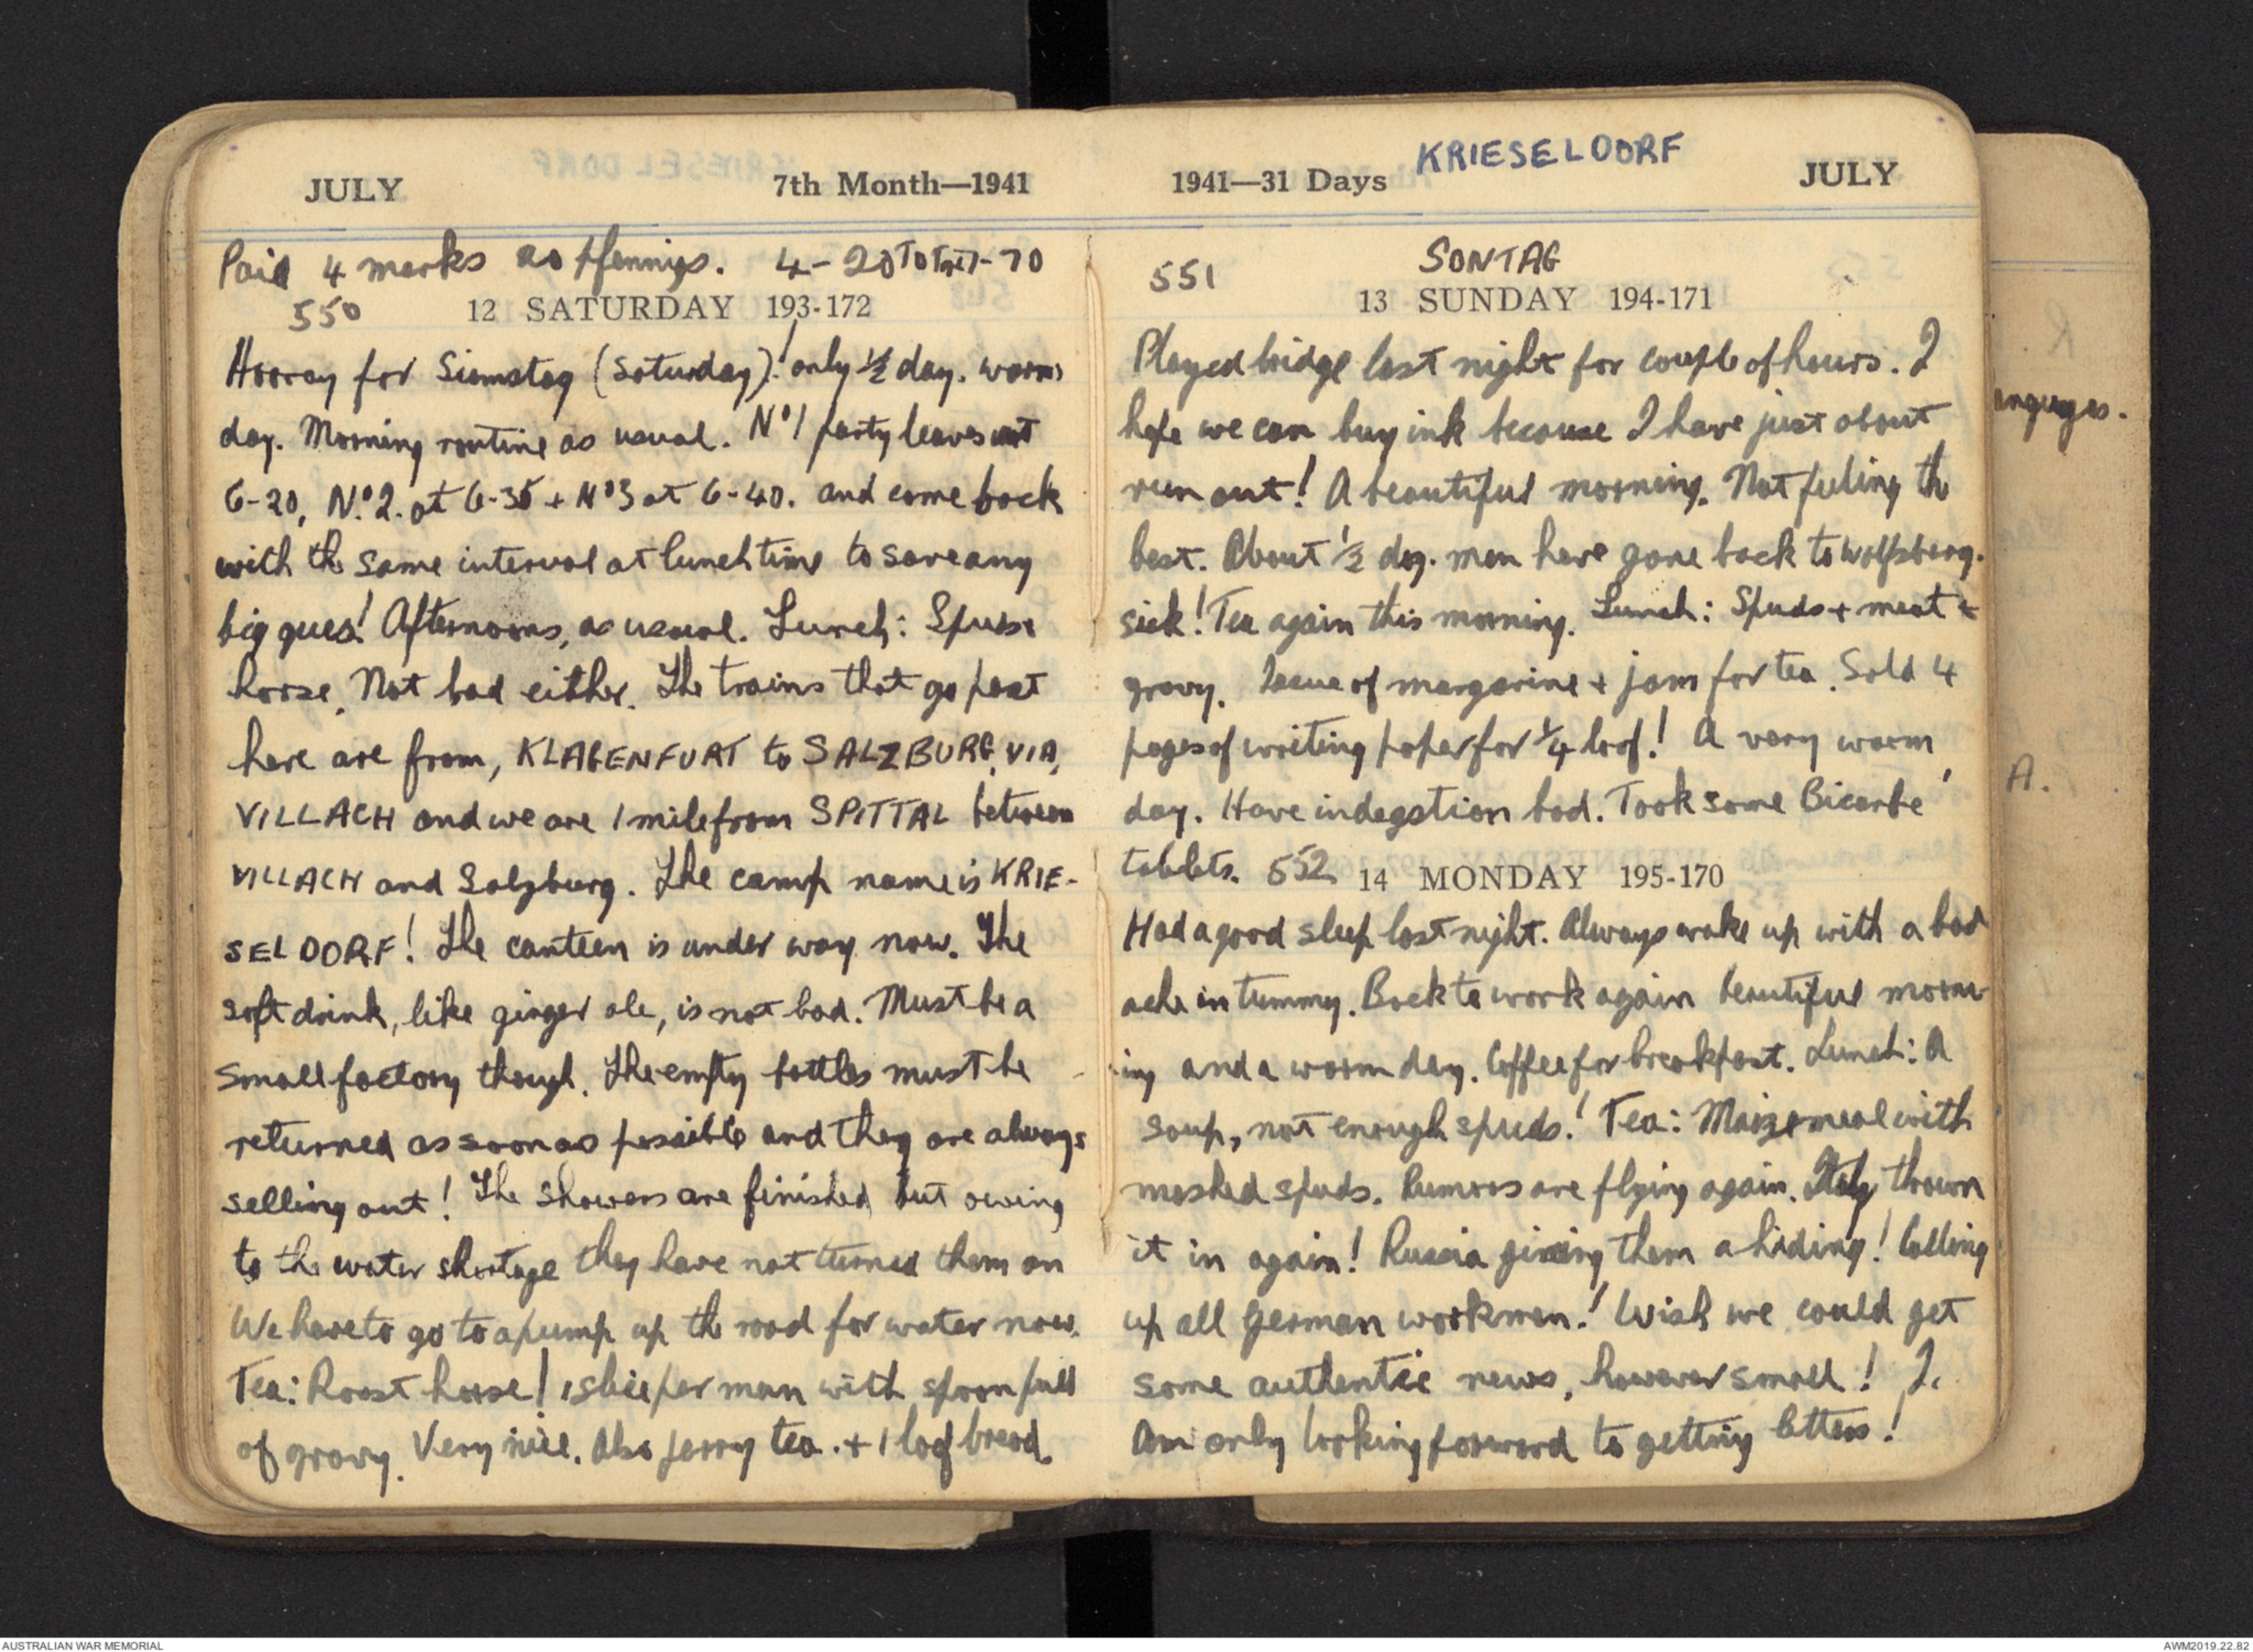 JULY 7th Month—1941
Paid 4 marks 20 pfennigs. 4-20 Total 7-70
550 12 SATURDAY 193-172
Hooray for Siamstag (Saturday)! only ½ day. warm
day. Morning routine as usual. Nº1 party leaves at
6-20, Nº2. at 6-35 + Nº3 at 6-40. and come back
with the same interval at lunch time to save any
big ques! Afternoons, as usual. Lunch: Spuds +
horse. Not bad either. The trains that go past
here are from, KLAGENFURT to SALZBURG, VIA,
VILLACH and we are 1 mile from SPITTAL between
VILLACH and Salzburg. The camp name is KRIE-
SELDORF! The canteen is under way now. The
soft drink, like ginger ale, is not bad. Must be a
small factory though. The empty bottles must be
returned as soon as possible and they are always
selling out! The showers are finished but owing
to the water shortage they have not turned them on
We have to go to a pump up the road for water now.
Tea: Roast horse! 1 slice per man with spoon full
of gravy. Very nice. Also jerry tea. + 1 loaf bread.
1941—31 Days KRIESELDORF JULY
SONTAG
551 13 SUNDAY 194-171
Played bridge last night for couple of hours. I
hope we can buy ink because I have just about
run out! A beautiful morning. Not feeling the
best. About ½ doz. men have gone back to Wolfsberg.
sick! Tea again this morning. Lunch: Spuds + meat +
gravy. Issue of margarine + jam for tea. Sold 4
pages of writing paper for ¼ loaf! A very warm
day. Have indegstion bad. Took some Bicarbe
tablets. 552 14 MONDAY 195-170
Had a good sleep last night. Always wake up with a bad
ache in tummy. Back to work again beautiful morn-
ing and a warm day. Coffee for breakfast. Lunch: A
soup, not enough spuds! Tea: Maize meal with
mashed spuds. Rumors are flying again. Italy thrown
it in again! Russia giving them a hiding! Calling
up all German workmen! Wish we could get
some authentic news, however small! I.
Am only looking forward to getting letters!
anguages.
A.
AUSTRALIAN WAR MEMORIAL AWM2019.22.82